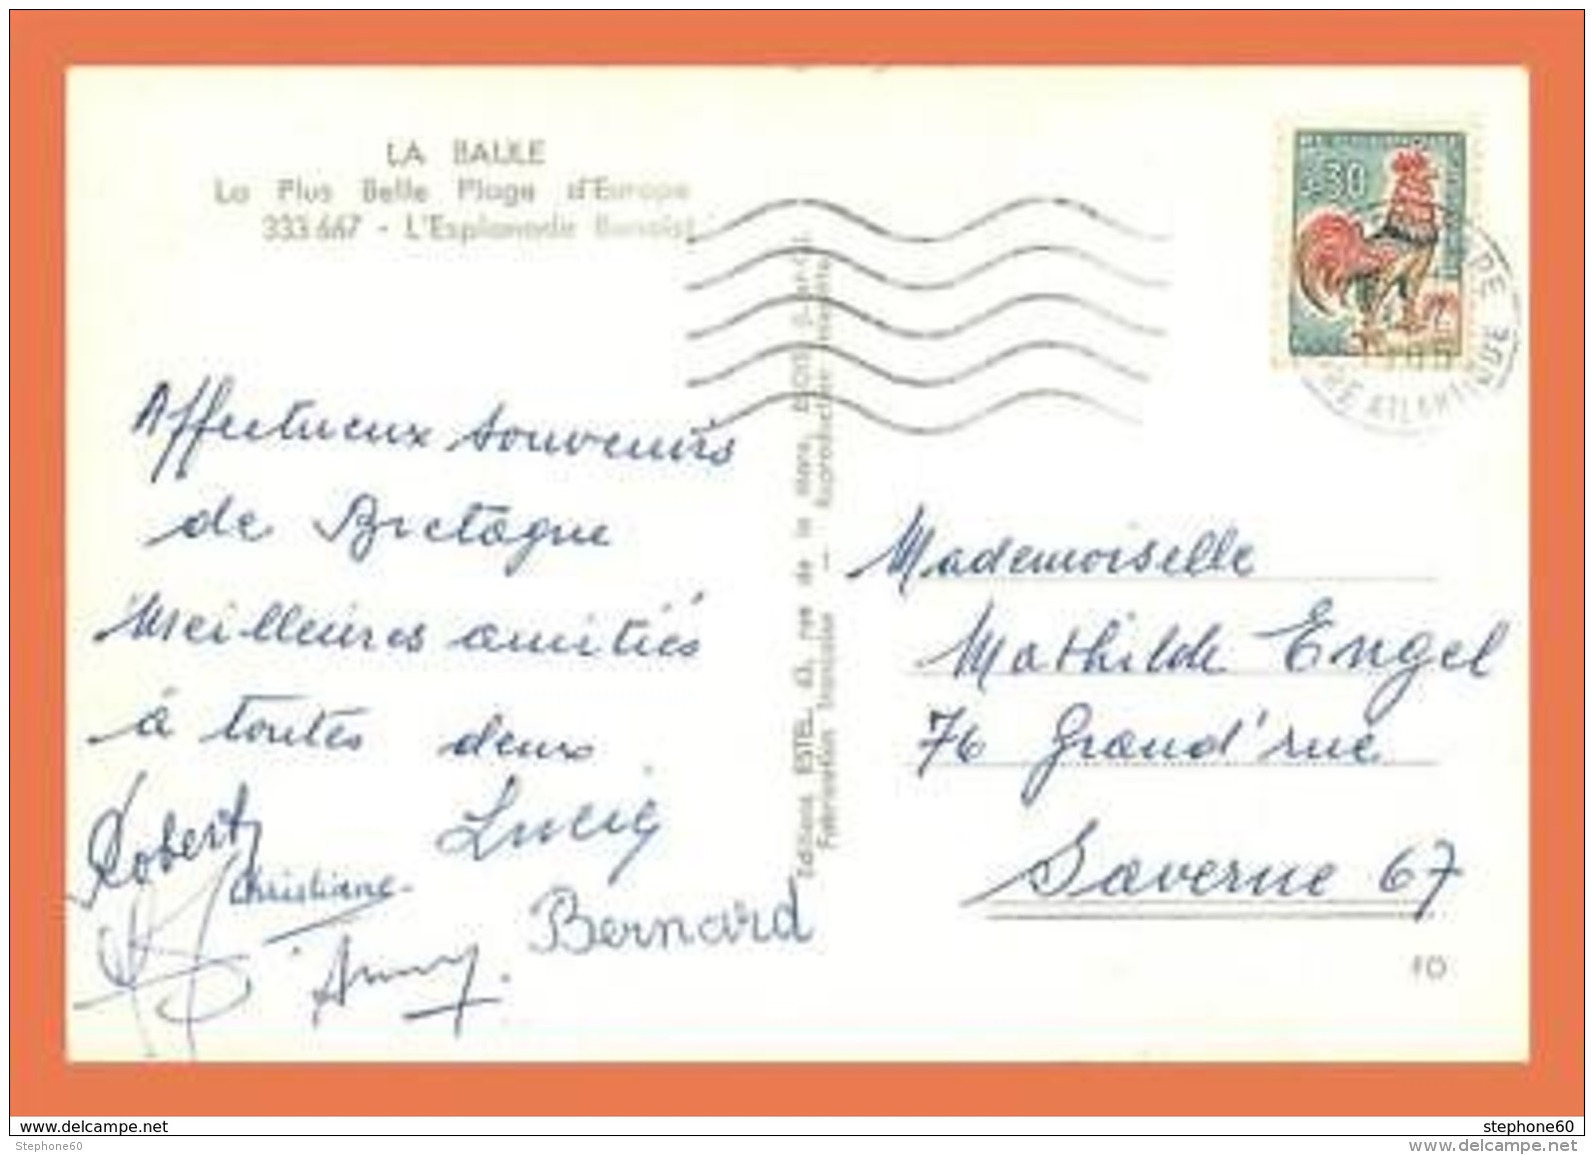 LA BAULE
La Plus Belle Plage d'Europe
333.667 - L'Esplanade Benoist
0,30
DE
ATLANTIQUE
Affectueux souvenirs
de Bretagne
Meilleures amitiés
à toutes deux
Robert
Lucie
Christiane
Bernard
Anny.
Editions ESTEL, 63, rue de la Mare, BLOIS
Fabrication française — Reproduction interdite
Mademoiselle
Mathilde Engel
76 Grand'rue
Saverne 67
10
www.delcampe.net
stephone60
Stephone60
www.delcampe.net